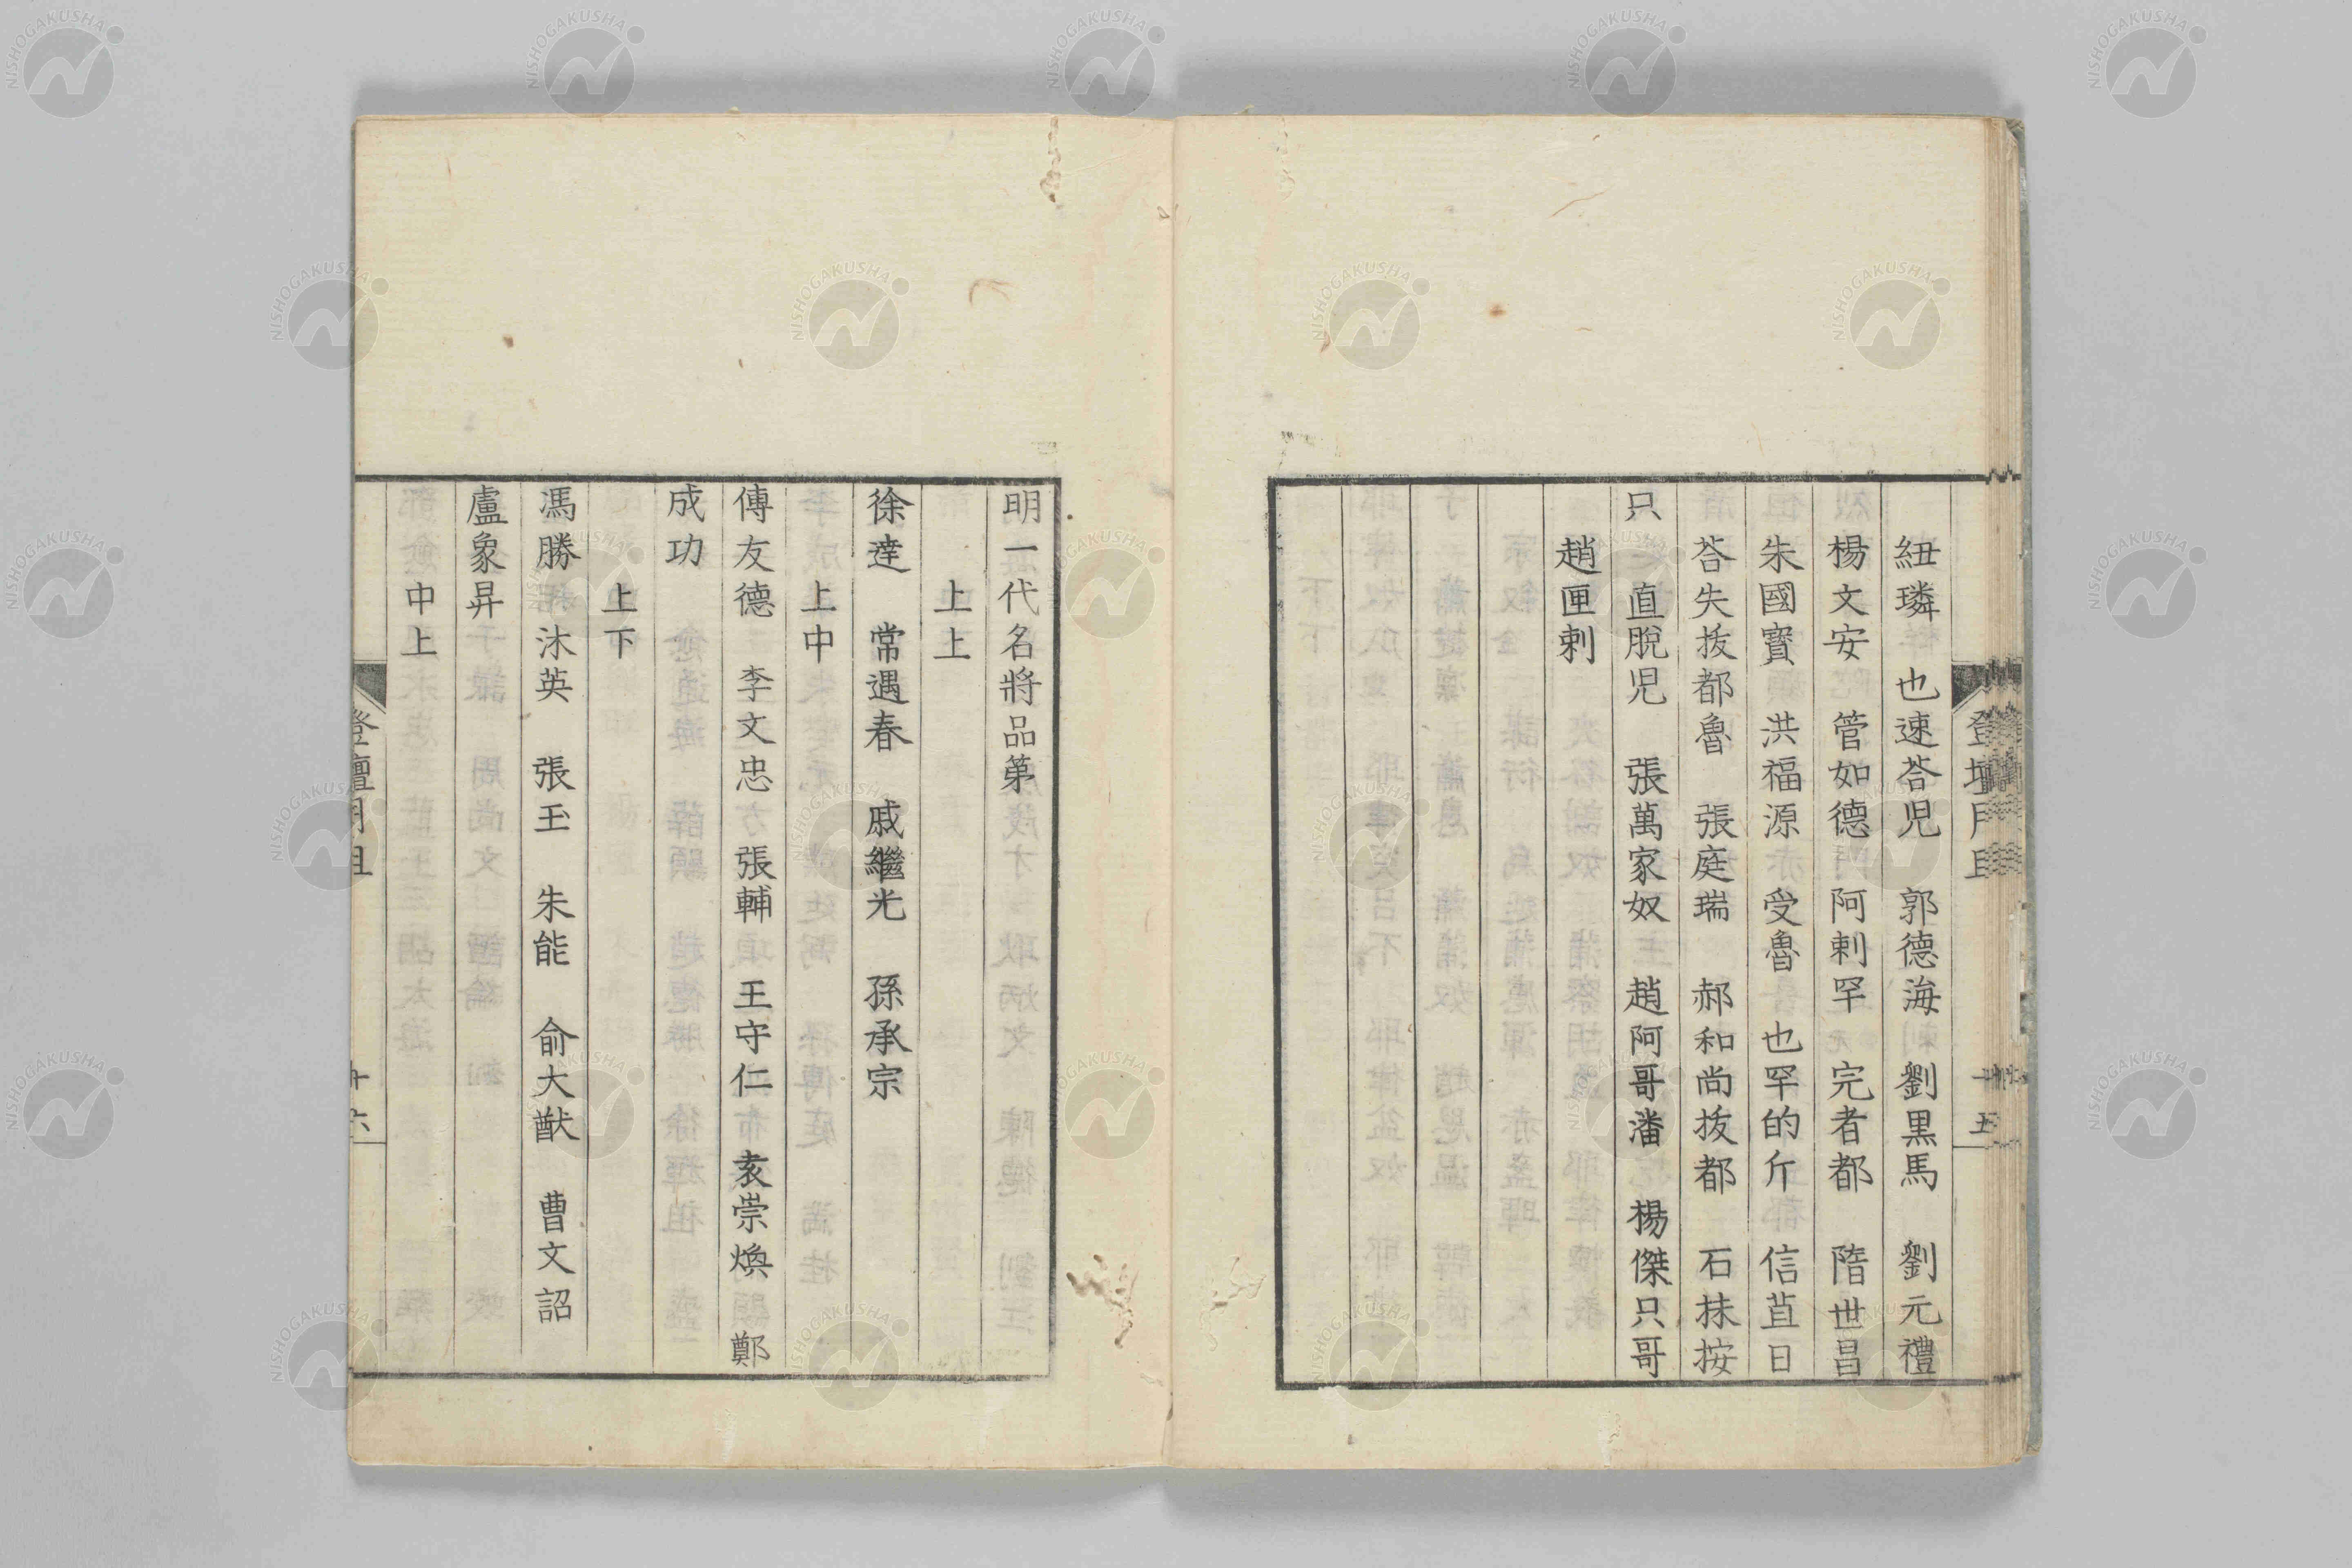 紐璘　也速荅児　郭德海　劉黒馬　劉元禮
楊文安　管如德　阿剌罕　完者都　隋世昌
朱國寶　洪福源　受魯　也罕的斤　信苴日
荅失抜都魯　張庭瑞　郝和尚抜都　石抹按
只　直脫児　張萬家奴　趙阿哥潘　楊傑只哥
趙匣剌
明一代名將品第
上上
徐達　常遇春　戚繼光　孫承宗
上中
傅友德　李文忠　張輔　王守仁　袁崇煥　鄭
成功
上下
馮勝　沐英　張玉　朱能　俞大猷　曹文詔
盧象昇
中上
十六
NISHOGAKUSHA